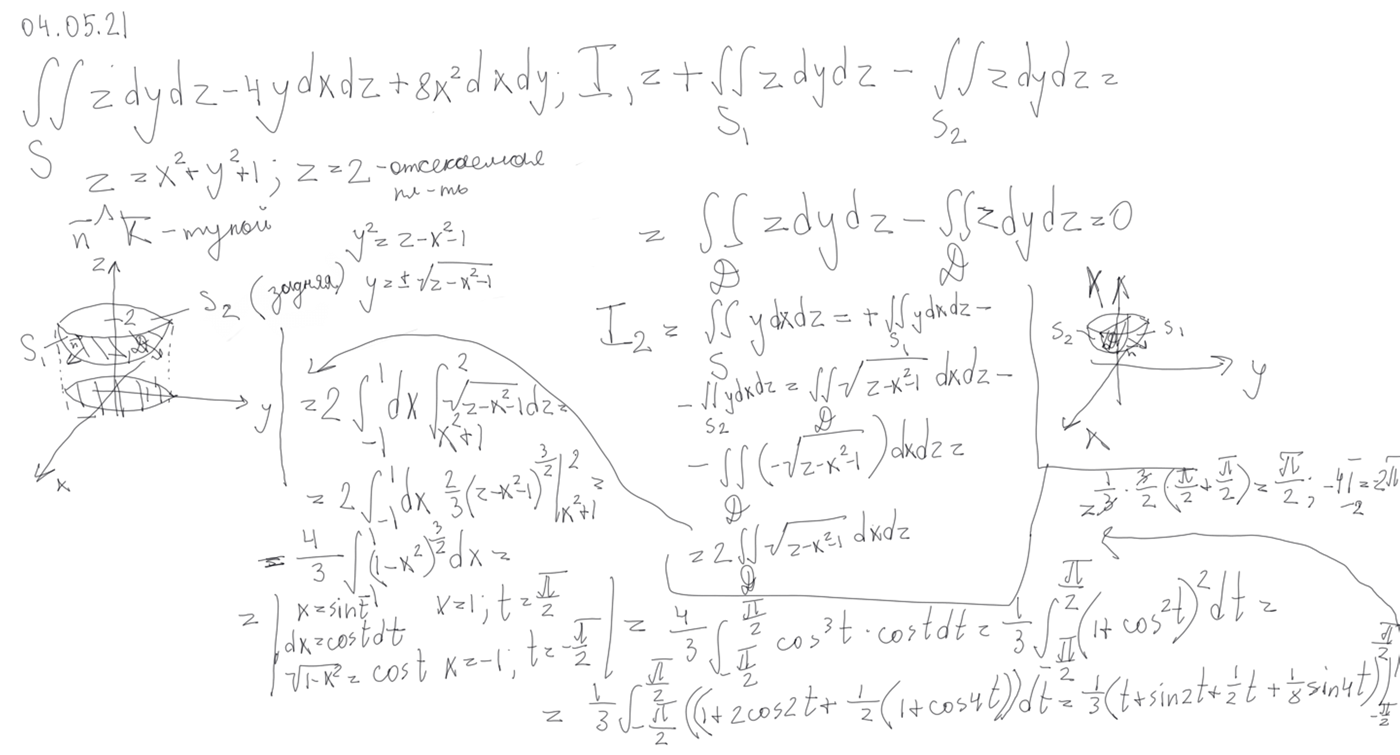 04.05.21
∬ z dydz - 4y dxdz + 8x² dxdy; I₁ = + ∬ z dydz - ∬ z dydz =
S S₁ S₂
z = x² + y² + 1; z = 2 - отсекаемая
пл-ть
n ^ k - тупой
= ∬ z dydz - ∬ z dydz = 0
D D
y² = z - x² - 1
y = ± √(z - x² - 1)
z
S₂ (задняя)
S₁
2
n
D
y
x
I₂ = ∬ y dxdz = + ∬ y dxdz -
S S₁
- ∬ y dxdz = ∬ √(z - x² - 1) dxdz -
S₂ D
- ∬ (-√(z - x² - 1)) dxdz =
D
= 2 ∬ √(z - x² - 1) dxdz
D
S₂ S₁
n
y
x
= 2 ∫₋₁¹ dx ∫_{x²+1}^2 √(z - x² - 1) dz =
= 2 ∫₋₁¹ dx 2/3 (z - x² - 1)^{3/2} |_{x²+1}^2 =
= 4/3 ∫₋₁¹ (1 - x²)^{3/2} dx =
= | x = sint x = 1; t = π/2
dx = costdt
√(1 - x²) = cost x = -1; t = -π/2 | = 4/3 ∫_{-π/2}^{π/2} cos³t · costdt = 1/3 ∫_{-π/2}^{π/2} (1 + cos2t)² dt =
= 1/3 ∫_{-π/2}^{π/2} ((1 + 2cos2t + 1/2 (1 + cos4t)) dt = 1/3 (t + sin2t + 1/2 t + 1/8 sin4t) |_{-π/2}^{π/2}
= 1/3 · 3/2 (π/2 + π/2) = π/2; -4I₂ = -2π